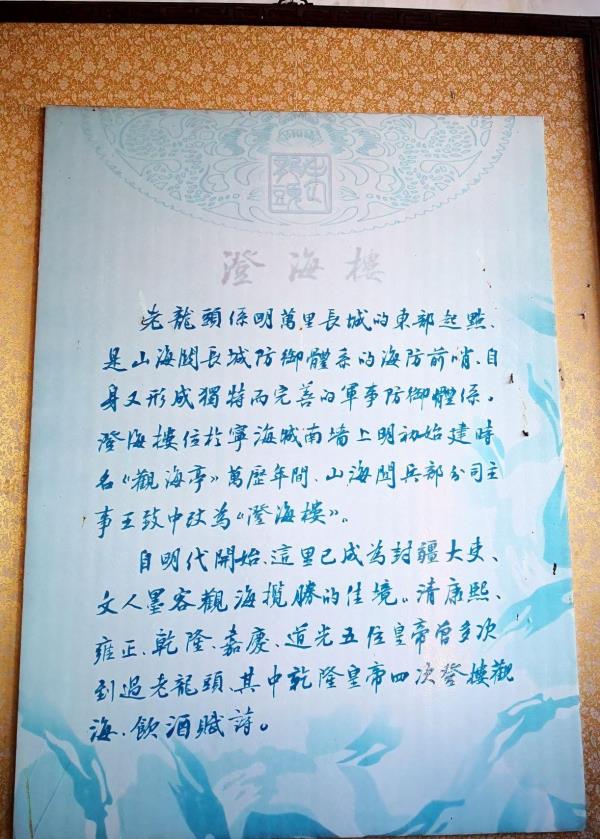 澄海樓
老龍頭係明萬里長城的東部起點、
是山海関長城防御體系的海防前哨、自
身又形成獨特而完善的軍事防御體係。
澄海樓位扵寧海城南墙上明初始建時
名《觀海亭》萬歷年間、山海関兵部分司主
事王致中改為《澄海樓》。
自明代開始、這里已成為封疆大吏、
文人墨客觀海攬勝的佳境。清康熙、
雍正、乾隆、嘉慶、道光五位皇帝曾多次
到過老龍頭、其中乾隆皇帝四次登樓觀
海、飲酒賦詩。